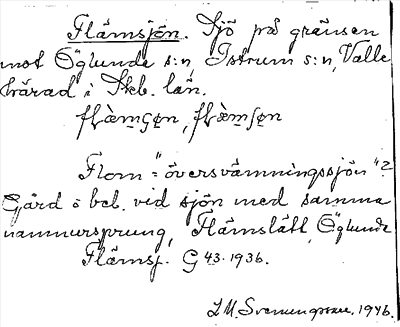 Flämsjön. Sjö på gränsen
mot Öglunda s:n, Istrum s:n, Valle
härad i Skb. län.
Flom "= översvämningssjön"?
Gård o beb. vid sjön med samma
namnursprung, Flämslätt, Öglunda
Flämsj. G 43. 1936.
L M. Svenungsson. 1946.